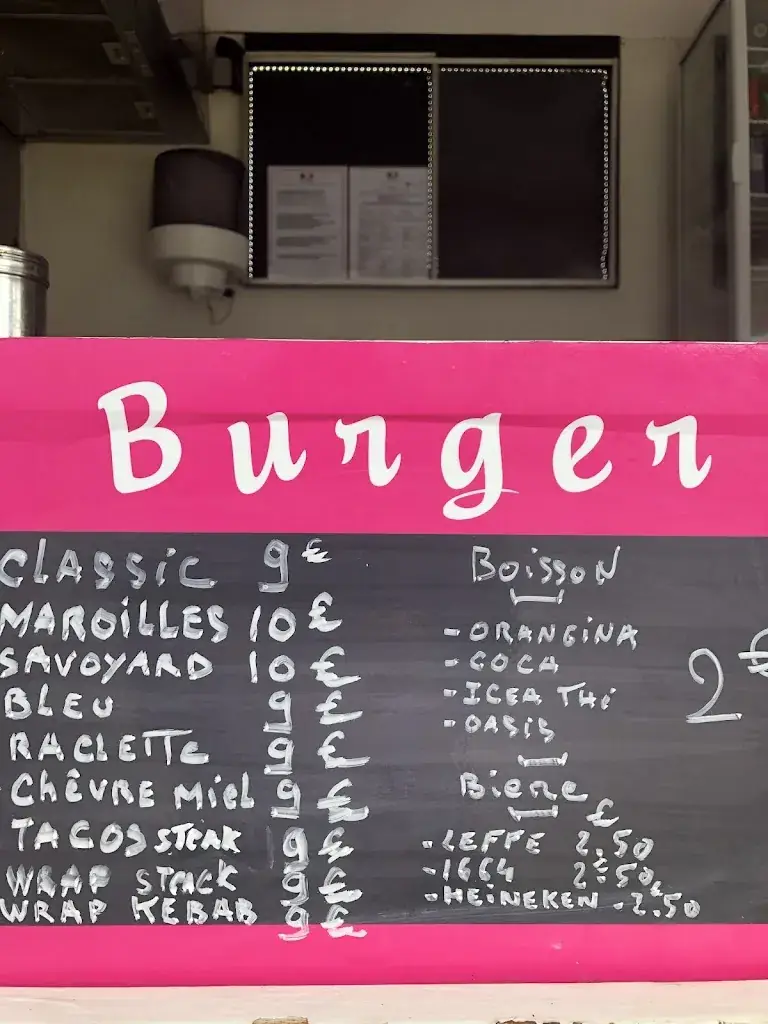 Burger
CLASSIC 9€
MAROILLES 10€
SAVOYARD 10€
BLEU 9€
RACLETTE 9€
CHÊVRE MIEL 9€
TACOS STEAK 9€
WRAP STACK 9€
WRAP KEBAB 9€
BOISSON
- ORANGINA
- COCA
- ICEA THI
- OASIS
2€
BIERE
- LEFFE 2.50€
- 1664 2€50
- HEINEKEN - 2.50€